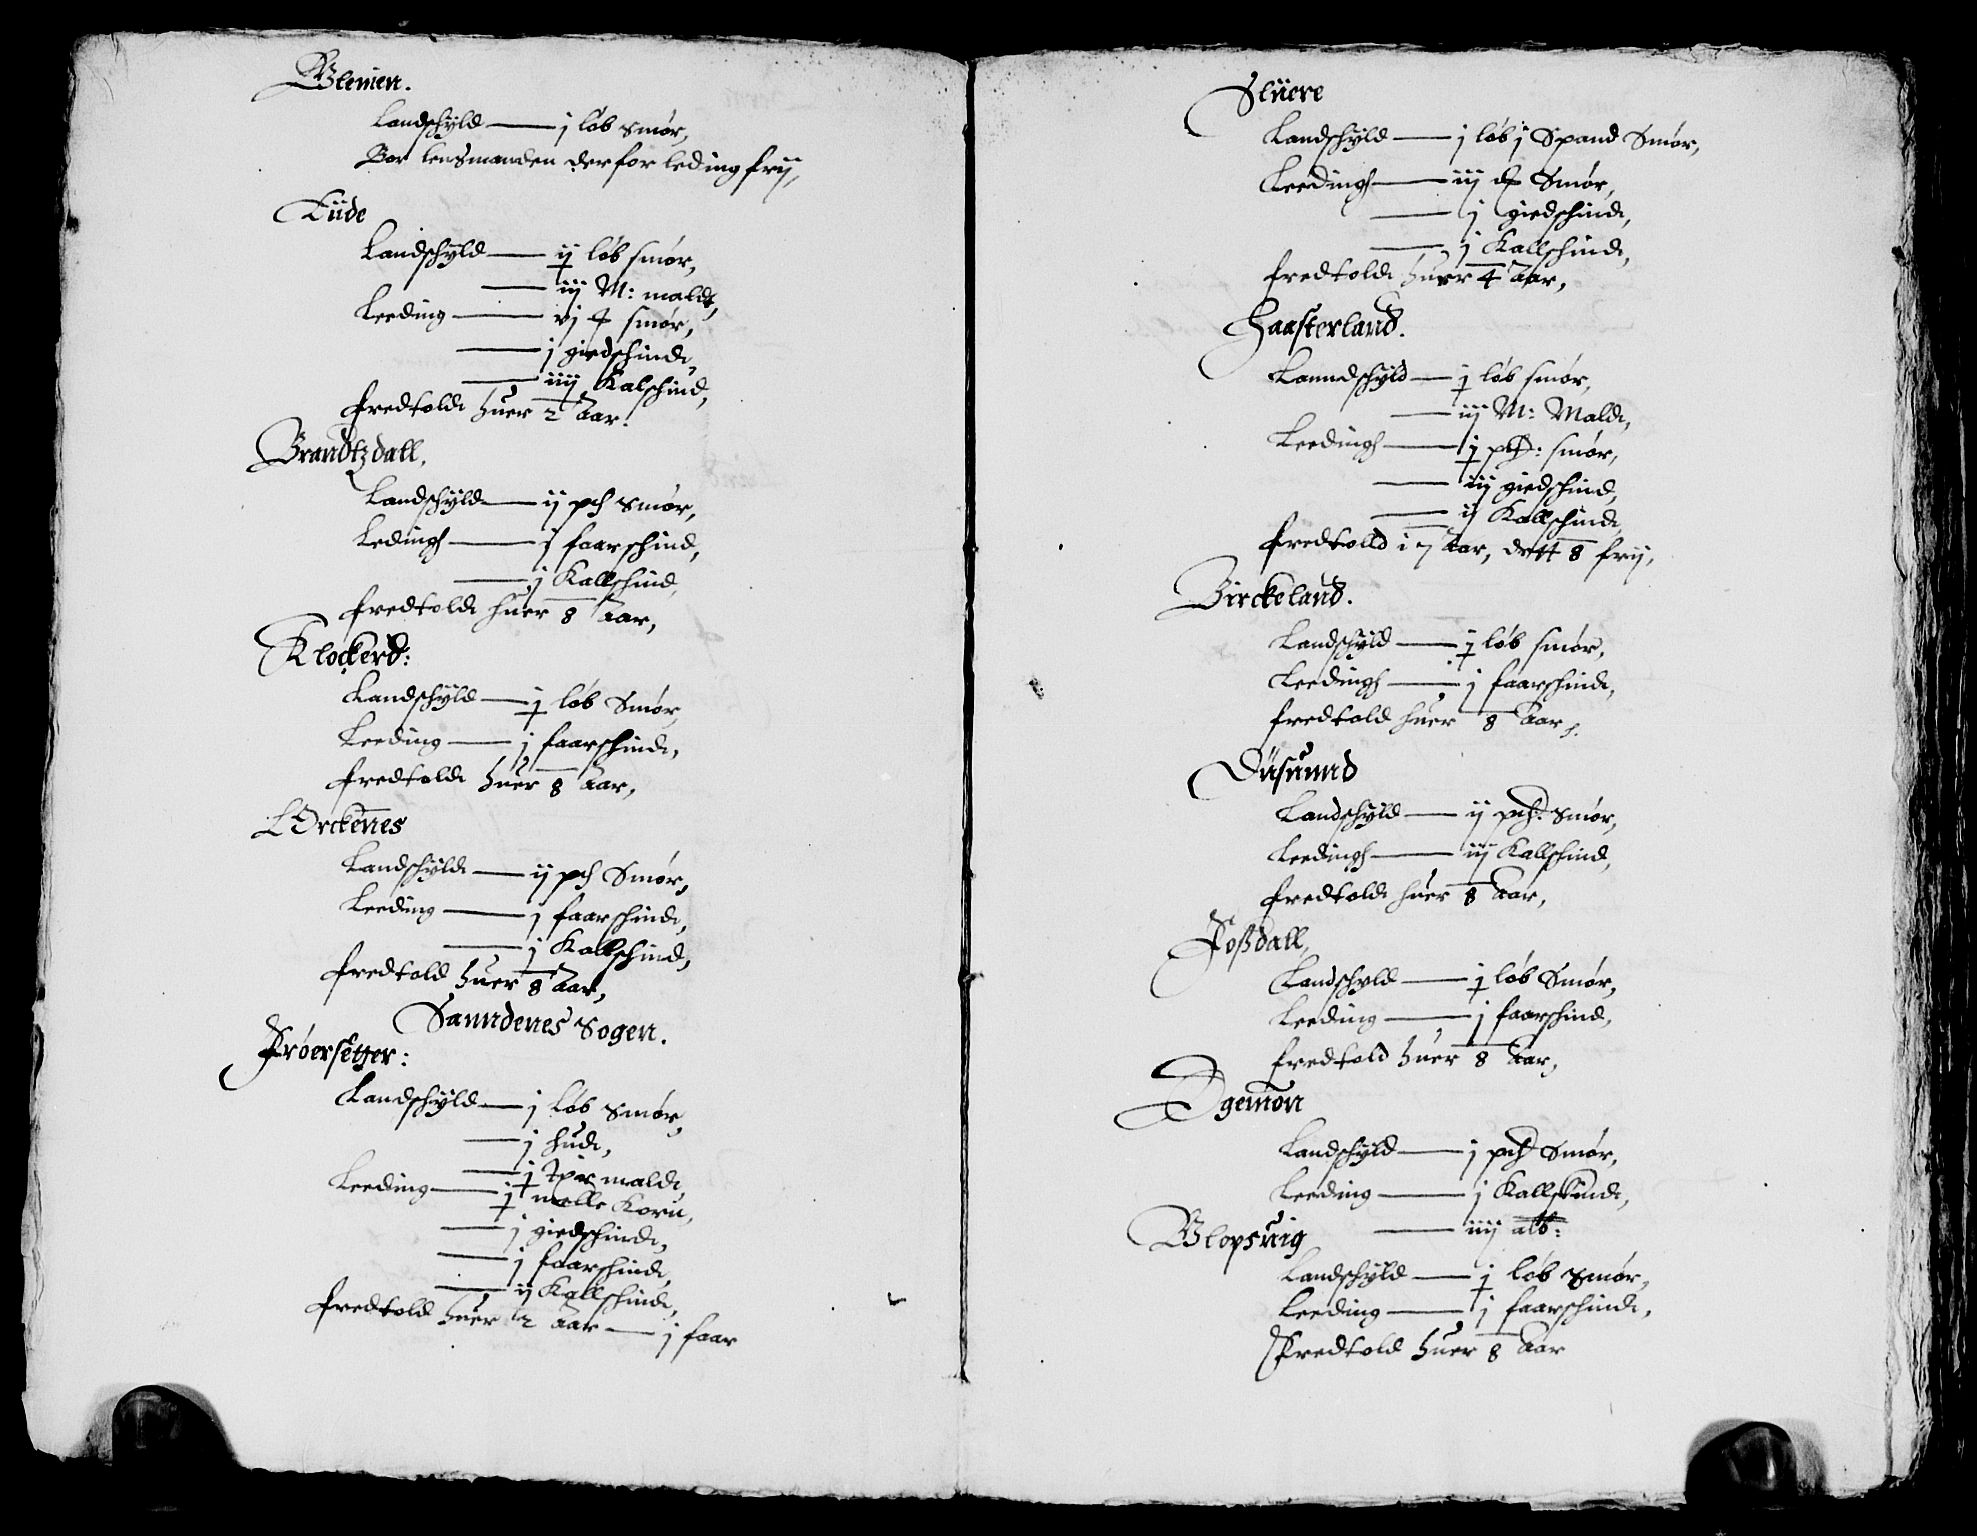 Blemen.
Landschyld — j løb smør,
Bor lensmanden derfor leding frij,
Eiide
Landschyld — ij løb smør,
— iij M: malde,
Leeding — vj smør,
— j giedschinde,
— iiij Kalschind,
fredtolde huer 2 Aar.
Brandtzdall.
Landschyld — ij pd smør,
Ledingh — j faarschind,
— j Kallschind,
fredtolde huer 8 Aar,
Klockerd:
Landschyld — j løb Smør,
Leeding — j faarschinde,
fredtolde huer 8 Aar,
Lørckenes
Landschylde — ij pd Smør,
Leeding — j faarschinde,
— j Kallschind,
fredtold huer 8 Aar,
Sanndenes Sogen.
Frøersetter:
Landschyld — j løb smør,
— j hude,
— j malde,
Leeding — j melle Korn,
— j giedschinde,
— j faarschinde,
— ij Kallschinde,
fredtold huer 2 Aar — j faar
Sluere
Landschyld — j løb j Spand Smør,
Leedingh — iij Smør,
— j giedschinde,
— j Kallschinde,
fredtolde huer 4 Aar,
Haasterland.
Lanndschyld — j løb smør,
— iij M: Malde,
Leedingh — j pd: smør,
— iij giedschind,
— ij Kallschinde,
fredtolld i 7 Aar, dett 8 frij,
Birckeland.
Landschyld — j løb smør,
Leedingh — j faarschinde,
fredtold huer 8 Aar,
Düsunnd
Landschyld — ij pd: Smør,
Leedingh — iij Kallschind,
fredtolde huer 8 Aar,
Foßdall,
Landschyld — j løb Smør,
Leeding — j faarschind,
fredtold huer 8 Aar,
Dgemon
Landschyld — j pd Smør,
Leeding — j Kallskinde,
— iiij alb:
Blopsuig
Landschyld — j løb smør,
Leeding — j faarschinde,
Fredtold huer 8 Aar